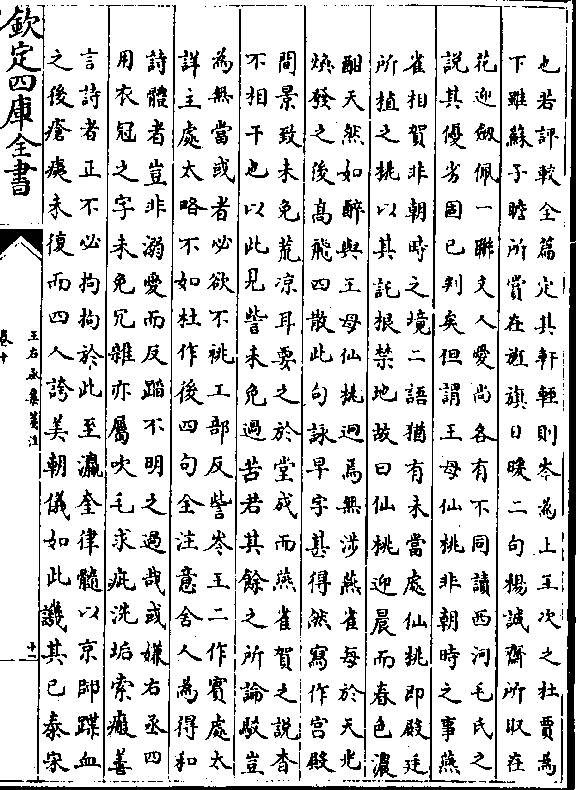 也若評較全篇定其軒輊則岑為上王次之杜賈為
下雖蘇子瞻所賞在旌旗日暖二句楊誠齋所取在
花迎劍佩一聯文人愛尚各有不同讀西河毛氏之
說其優劣固已判矣但謂王母仙桃非朝時之事燕
雀相賀非朝時之境二語猶有未當處仙桃即殿廷
所植之桃以其託根禁地故曰仙桃迎晨而春色濃
酣天然如醉與王母仙桃迥焉無涉燕雀每於天光
煥發之後高飛四散此句詠早字甚得然寫作宮殿
間景致未免荒凉耳要之於堂成而燕雀賀之說杳
不相干也以此見訾未免過苦君其餘之所論駁豈
為無當或者必欲不祧工部反訾岑王二作賓處太
詳主處太略不如杜作後四句全注意舍人為得和
詩體者豈非溺愛而反蹈不明之過哉或嫌右丞四
用衣冠之字未免冗雜亦屬吹毛求疵洗垢索瘢善
言詩者正不必拘拘於此至瀛奎律髓以京師蹀血
之後瘡痍未復而四人誇美朝儀如此譏其已泰宋
欽定四庫全書
王右丞集箋注
卷十
十一